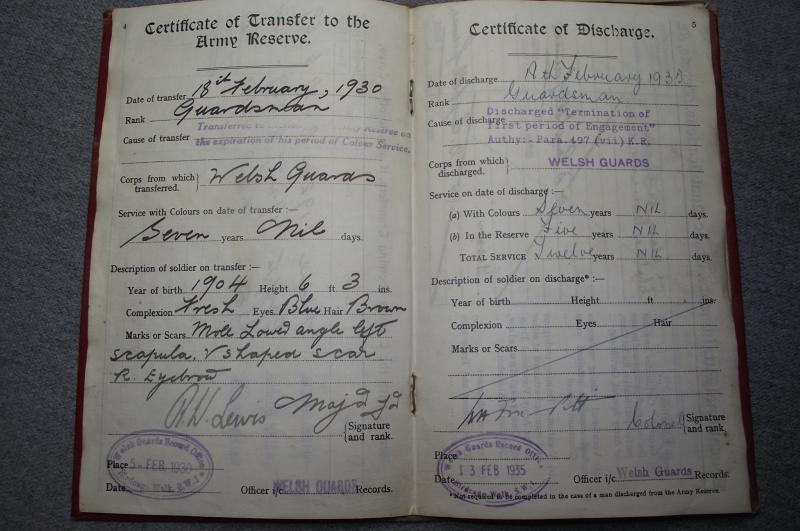 4
Certificate of Transfer to the
Army Reserve.
Date of transfer 18th February, 1930
Rank Guardsman
Cause of transfer Transferred to Army Reserve on
the expiration of his period of Colour Service.
Corps from which transferred. Welsh Guards
Service with Colours on date of transfer :—
Seven years Nil days.
Description of soldier on transfer :—
Year of birth 1904 Height 6 ft 3 ins.
Complexion Fresh Eyes Blue Hair Brown
Marks or Scars Mole Lower angle left
scapula, V shaped scar
R. Eyebrow
Lewis Maj
Signature and rank.
Place
Welsh Guards Record Office
5 FEB 1930
Birdcage Walk, S.W.1.
Date Officer i/c WELSH GUARDS Records.
5
Certificate of Discharge.
Date of discharge February 1935
Rank Guardsman
Cause of discharge Discharged "Termination of
first period of Engagement"
Authy:- Para. 497 (vii) K.R.
Corps from which discharged. WELSH GUARDS
Service on date of discharge :—
(a) With Colours Seven years NIL days.
(b) In the Reserve Five years NIL days.
TOTAL SERVICE Twelve years NIL days.
Description of soldier on discharge* :—
Year of birth Height ft ins.
Complexion Eyes Hair
Marks or Scars
Colonel
Signature and rank.
Place
Welsh Guards Record Office
13 FEB 1935
Birdcage Walk, S.W.1.
Date Officer i/c Welsh Guards Records.
* Not required to be completed in the case of a man discharged from the Army Reserve.